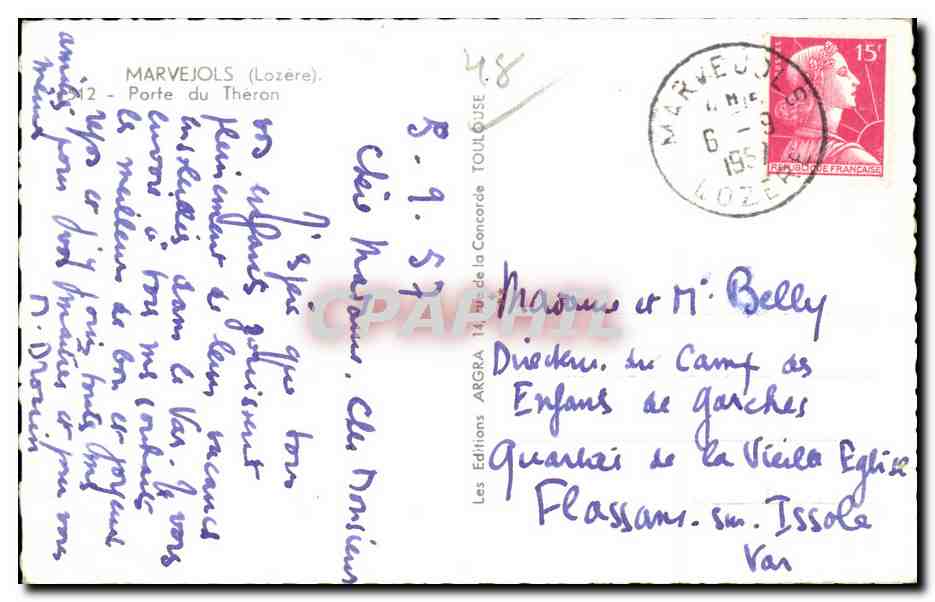 MARVEJOLS (Lozère).
12 - Porte du Théron
48
5. 9. 57
Chère Madame, Cher Monsieur
J'espère que tous
vos enfants jouissent
pleinement de leurs vacances
dans le Var. Je vous
envoie à tous mes souhaits
les meilleurs de bon et joyeux
repos et j'y joins toutes mes
amitiés pour vos maîtres et pour vous
même
M. Drouin
Les Editions ARGRA 14, rue de la Concorde TOULOUSE
MARVEJOLS
6 - 9
1957
LOZERE
15F
POSTES
REPUBLIQUE FRANÇAISE
CPAPHIL
Madame et Mr Belly
Directeur du Camp des
Enfants de Garches
Quartier de la Vieille Eglise
Flassans-sur-Issole
Var